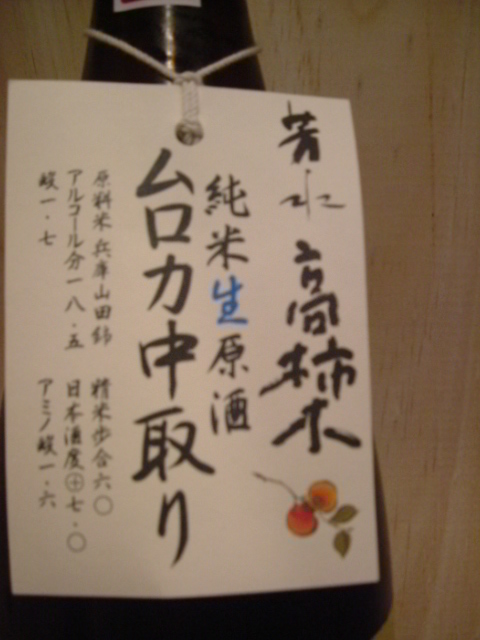 芳水 高柿木
純米生原酒
ムロカ中取り
原料米兵庫山田錦 精米歩合六〇
アルコール分一八・五 日本酒度⊕七・〇
酸一・七 アミノ酸一・六